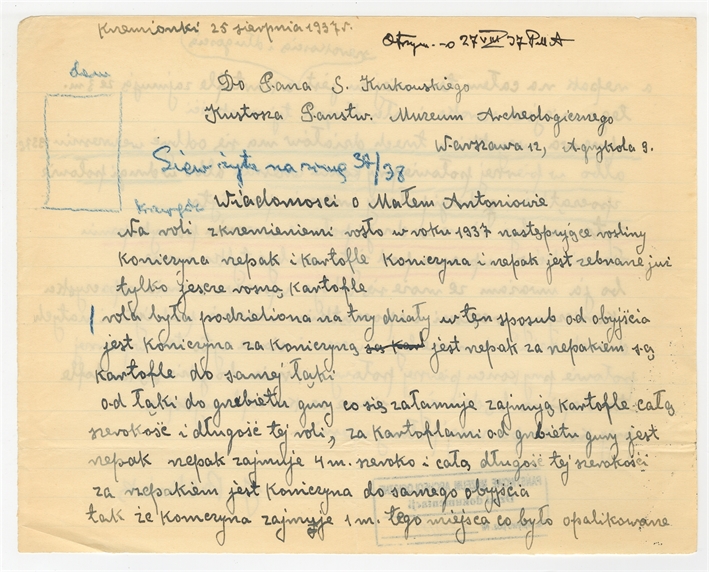 Krzemionki 25 sierpnia 1937 r.
Otrzym. 27 VIII 37 PMA
dom
Do Pana S. Krukowskiego
Kustosza Państw. Muzeum Archeologicznego
Warszawa 12, Agrykola 9.
Siew żyta na zimę 37/38
Wiadomosci o Małem Antoniowie
Na roli zkremieniemi rosło w roku 1937 następujące rosliny
koniczyna nepak i kartofle koniczyna i nepak jest zebrane juz
tylko jescre rosną kartofle
rola była podzieliona na try działy w tęn sposub od obyjścia
jest koniczyna za koniczyną jest nepak za nepakiem są
kartofle do samej łąki
od łąki do grebietu gury co się załamuje zajmują kartofle całą
szerokość i długość tej roli, za kartoflami od grebietu gury jest
nepak nepak zajmuje 4 m. szeroko i całą długość tej szerokości
za rzepakiem jest koniczyna do samego obyjścia
tak że koniczyna zajmuje 1 m. tego miejsca co było opalikowane